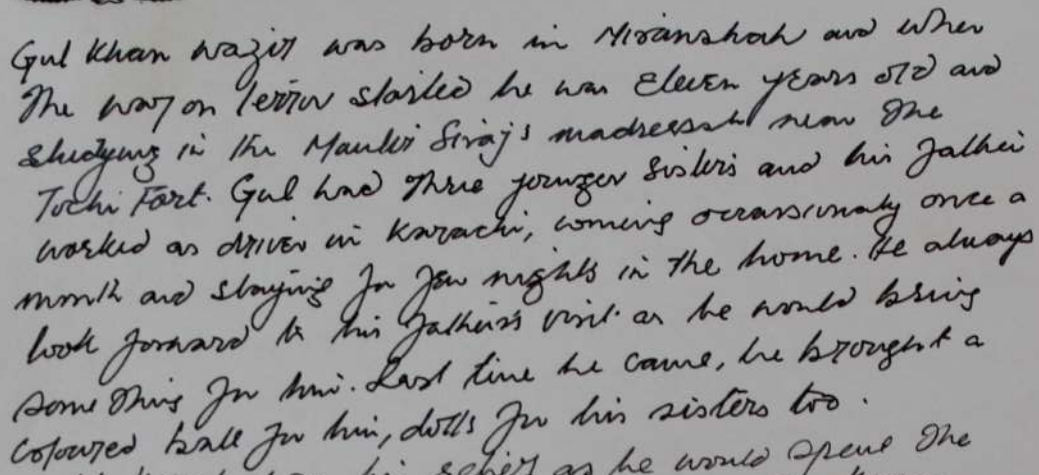 Gul Khan Wazir was born in Miranshah and when
the war on terror started he was eleven years old and
studying in the Maulvi Siraj's madressah near the
Tochi Fort. Gul had three younger sisters and his father
worked as driver in Karachi, coming occassionaly once a
month and staying for few nights in the home. He always
look forward to his father's visit as he would bring
something for him. Last time he came, he brought a
coloured ball for him, dolls for his sisters too.
as he would spend the